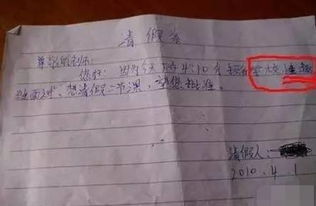 请假条
尊敬的老师:
您好! 因为今天下午4:10有
面试, 想请假一节课, 望您批准。
请假人:
2010.4.1